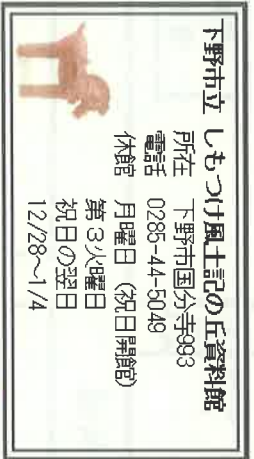 下野市立 しもつけ風土記の丘資料館
所在 下野市国分寺993
電話 0285-44-5049
休館 月曜日 (祝日開館)
第3火曜日
祝日の翌日
12/28~1/4